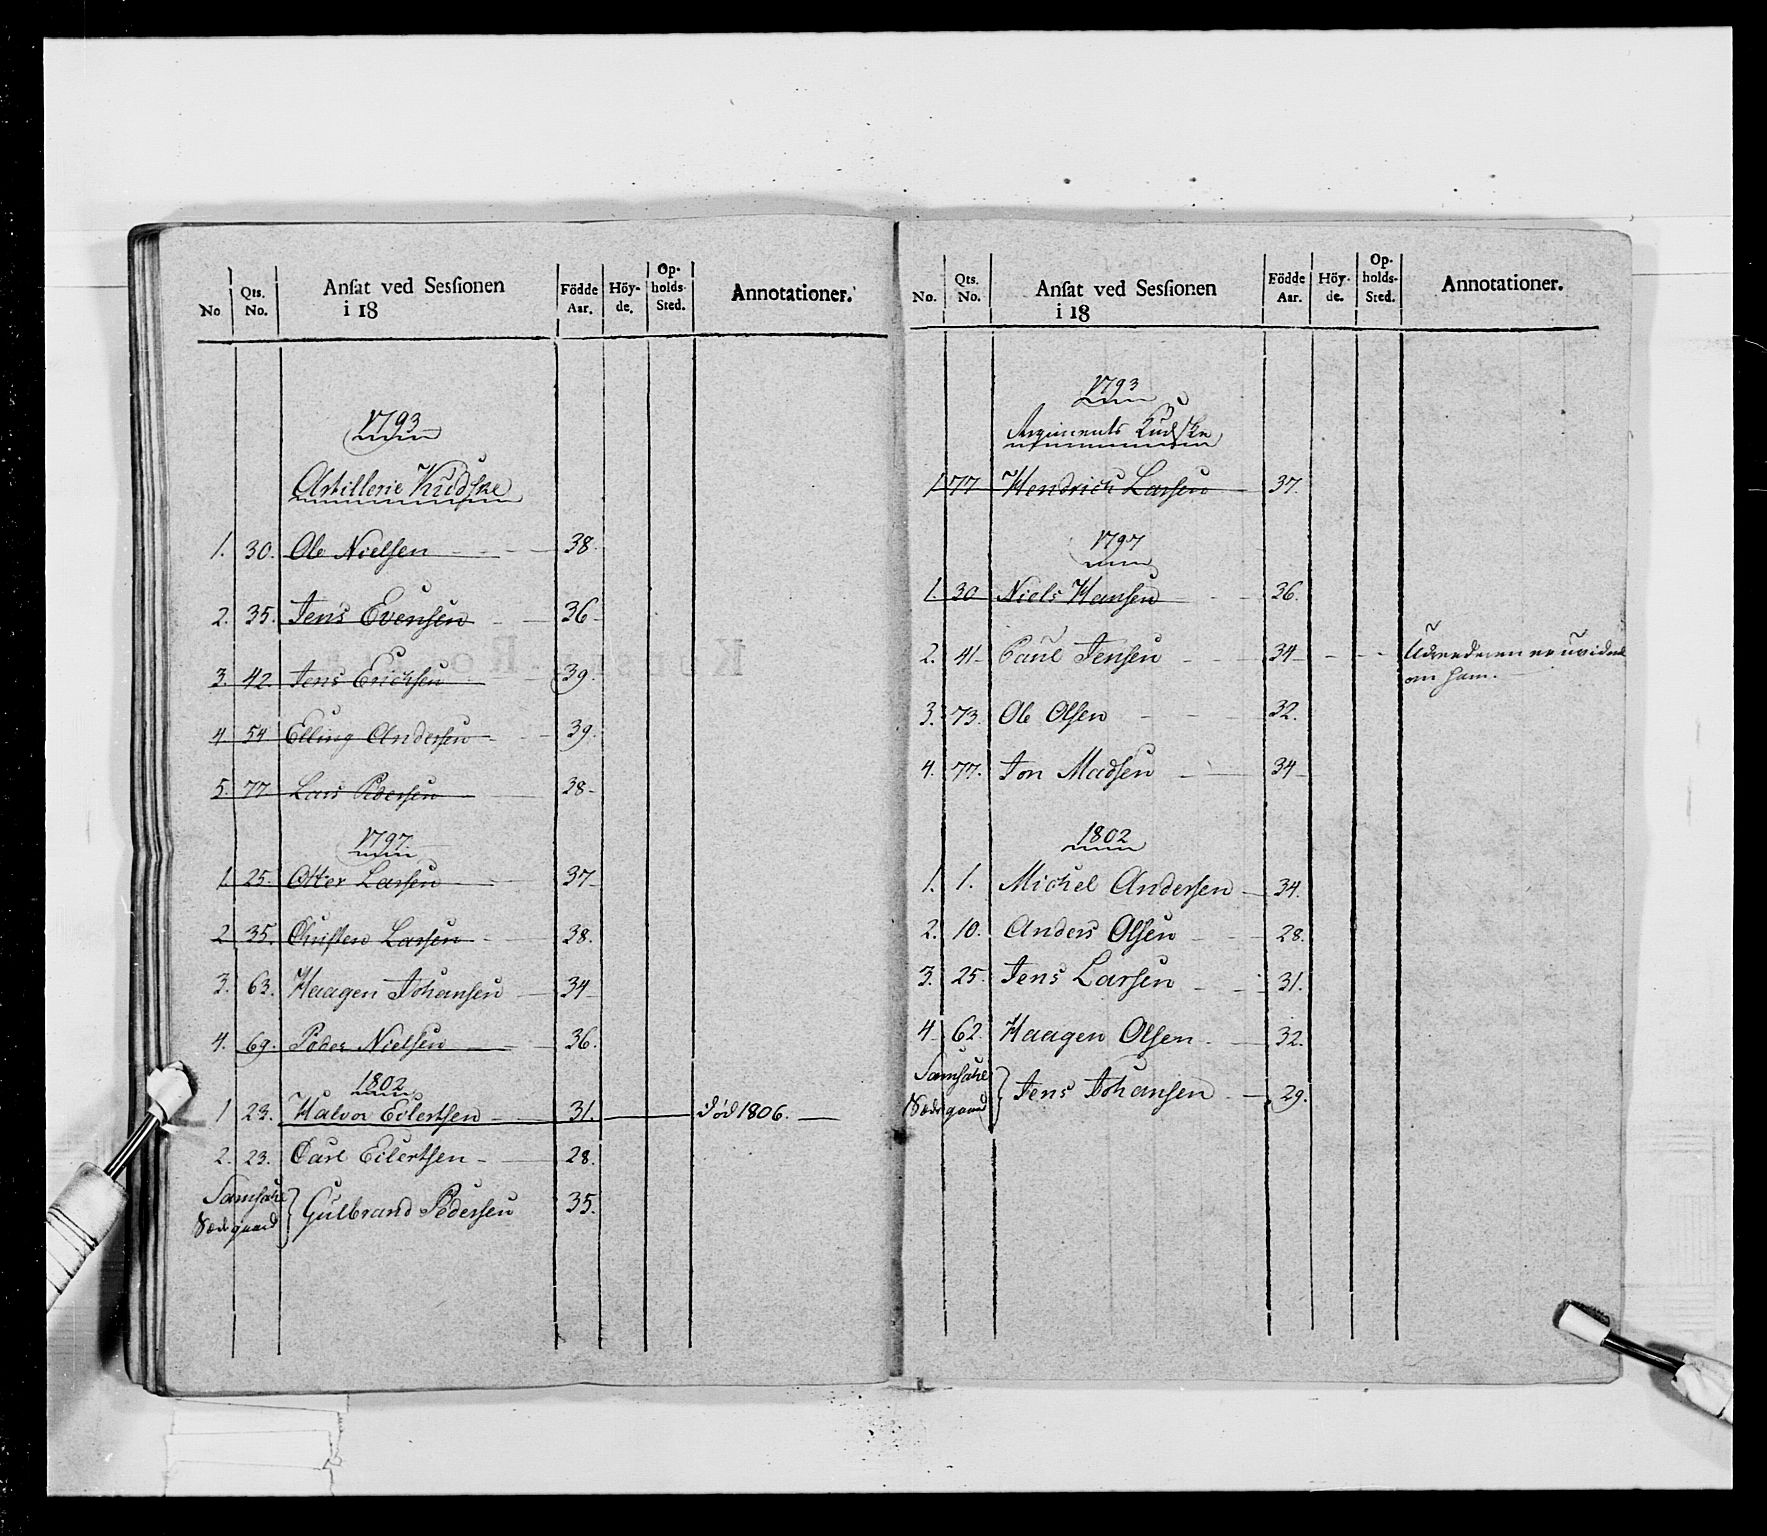 No. Qts. No. Ansat ved Sessionen i 18 Födde Aar. Höyde. Opholds-Sted. Annotationer.
1793
Artillerie Kudske
1. 30. Ole Nielsen 38.
2. 35. Jens Evensen 36
3. 42. Jens Erichsen 39.
4. 54 Elling Andersen 39.
5. 77. Lars Pedersen 28
1797
1. 25. Otter Larsen 37
2. 35. Christen Larsen 38.
3. 63. Haagen Johansen 34
4. 69. Peder Nielsen 36.
1802
1 23. Halvor Eilertsen 31. Död 1806.
2. 23. Carl Eilertsen 28.
Gulbrand Pedersen 35.
No. Qts. No. Ansat ved Sessionen i 18 Födde Aar. Höyde. Opholds-Sted. Annotationer.
1793
Regiments Kudske
1. 77 Hendrich Larsen 37.
1797
1. 30 Niels Hansen 36.
2. 41. Paul Jensen 34 er uvidende
om ham.
3. 73. Ole Olsen 32.
4. 77. Jon Madsen 34
1802
1. 1. Michel Andersen 34.
2. 10. Anders Olsen 28.
3. 25. Jens Larsen 31.
4 62. Haagen Olsen 32.
Jens Johansen 29.